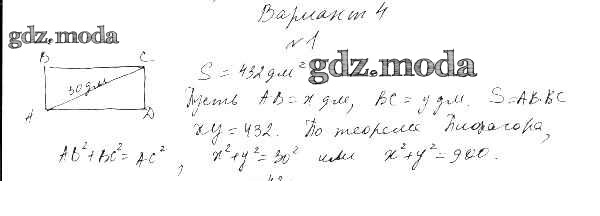 Вариант 4
gdz.moda
№1
B C
30 дм
A D
S = 432 дм² gdz.moda
Пусть AB = x дм, BC = y дм. S = AB·BC
xy = 432. По теореме Пифагора,
AB² + BC² = AC², x² + y² = 30² или x² + y² = 900.